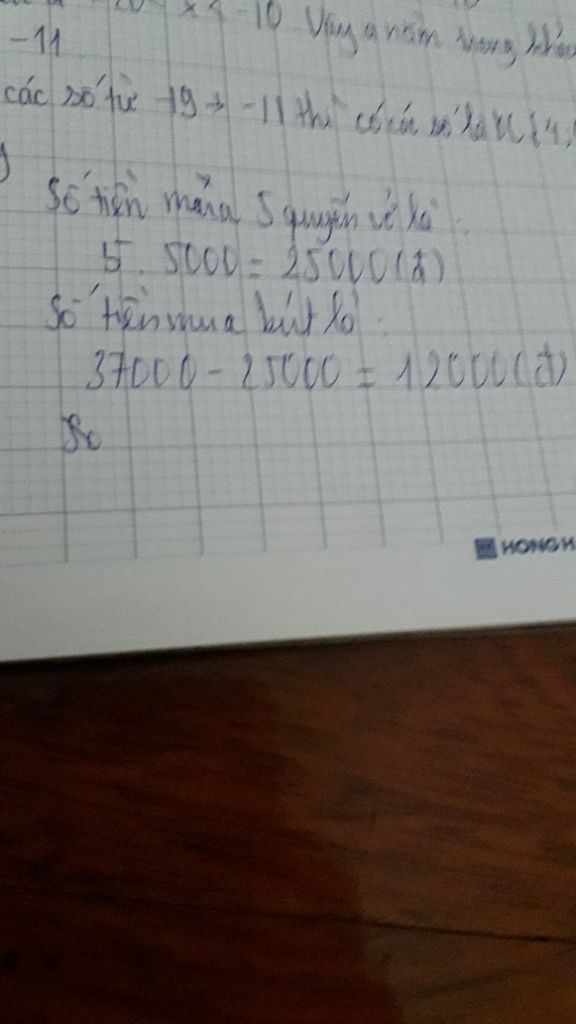 -20 x < -10 Vậy a nằm trong khoản
-11
các số từ -19 → -11 thì có các số là
Số tiền mua 5 quyển vở là :
5 . 5000 = 25000(đ)
Số tiền mua bút là :
37000 - 25000 = 12000(đ)
So
HONG H